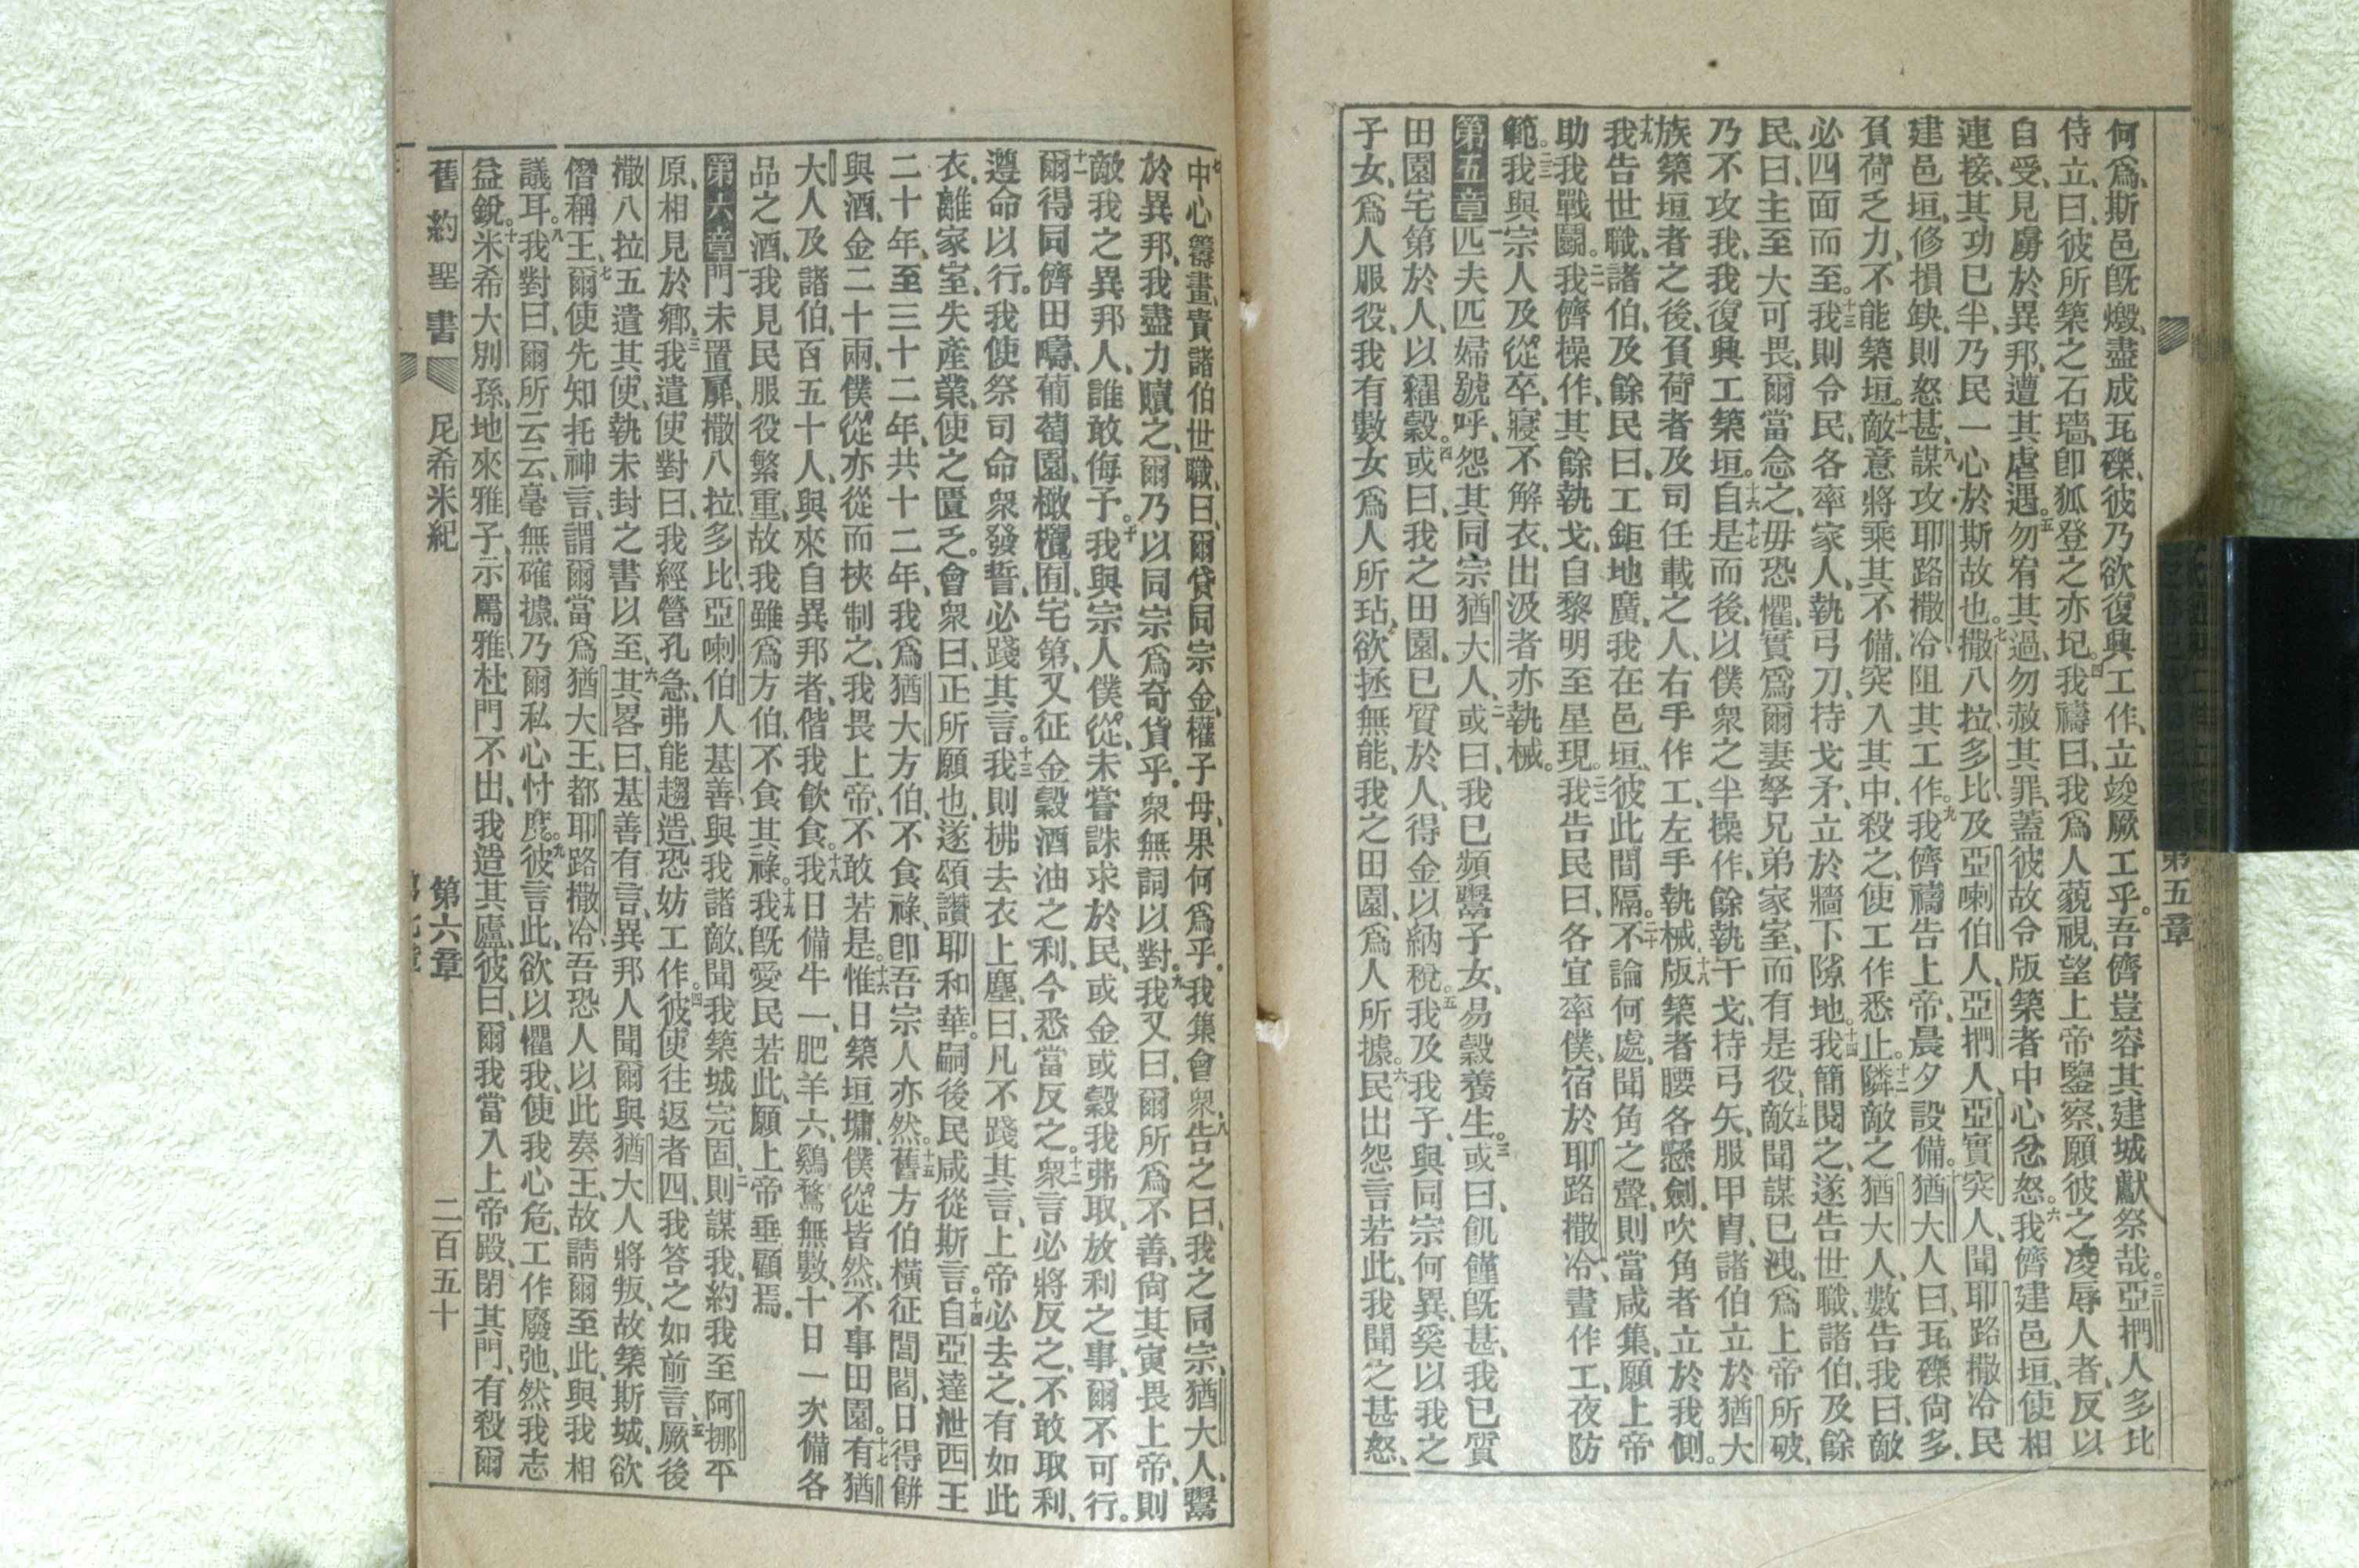 何爲、斯邑旣燬、盡成瓦礫、彼乃欲復興工作、立竣厥工乎。吾儕豈容其建城獻祭哉。三亞捫人多比
侍立、曰、彼所築之石墻、卽狐登之亦圮。四我禱曰、我爲人藐視、望上帝鑒察、願彼之凌辱人者、反以
自受、見虜於異邦、遭其虐遇。五勿宥其過、勿赦其罪、蓋彼故令版築者中心忿怒。六我儕建邑垣、使相
連接、其功已半、乃民一心於斯故也。七撒八拉、多比、及亞喇伯人、亞捫人、亞實突人、聞耶路撒冷民
建邑垣、修損缺、則怒甚。八謀攻耶路撒冷、阻其工作。九我儕禱告上帝、晨夕設備。十猶大人曰、瓦礫尙多、
負荷乏力、不能築垣。十一敵意將乘其不備、突入其中、殺之、使工作悉止。十二隣敵之猶大人、數告我曰、敵
必四面而至。十三我則令民、各率家人、執弓刀、持戈矛、立於牆下隙地。十四我簡閱之、遂告世職、諸伯、及餘
民、曰、主至大可畏、爾當念之、毋恐懼、實爲爾妻孥兄弟家室、而有是役、十五敵聞謀已洩、爲上帝所破、
乃不攻我、我復興工築垣。十六十七自是而後、以僕衆之半操作、餘執干戈、持弓矢、服甲冑、諸伯立於猶大
族築垣者之後、負荷者及司任載之人、右手作工、左手執械、十八版築者腰各懸劍、吹角者立於我側。
十九我告世職、諸伯、及餘民曰、工鉅地廣、我在邑垣、彼此間隔。二十不論何處、聞角之聲、則當咸集、願上帝
助我戰鬬。二一我儕操作、其餘執戈、自黎明至星現。二二我告民曰、各宜率僕、宿於耶路撒冷、晝作工、夜防
範。二三我與宗人及從卒、寢不解衣、出汲者亦執械。
第五章一匹夫匹婦號呼、怨其同宗猶大人、二或曰、我已頻鬻子女、易穀養生。三或曰、飢饉旣甚、我已質
田園宅第於人、以糴穀。四或曰、我之田園、已質於人、得金以納稅。五我及我子、與同宗何異、奚以我之
子女、爲人服役、我有數女爲人所玷、欲拯無能、我之田園、爲人所據。六民出怨言若此、我聞之甚怒、
七中心籌畫、責諸伯世職、曰、爾貸同宗金、權子母、果何爲乎。我集會衆、八告之曰、我之同宗、猶大人、鬻
於異邦、我盡力贖之、爾乃以同宗爲奇貨乎。衆無詞以對。九我又曰、爾所爲不善、尙其寅畏上帝、則
敵我之異邦人、誰敢侮予。十我與宗人僕從、未嘗誅求於民、或金或穀、我弗取、放利之事、爾不可行。
十一爾得同儕田疇、葡萄園、橄欖囿、宅第、又征金穀酒油之利、今悉當反之。十二衆言必將反之、不敢取利、
遵命以行。我使祭司命衆發誓、必踐其言。十三我則拂去衣上塵、曰、凡不踐其言、上帝必去之、有如此
衣、離家室、失產業、使之匱乏。會衆曰、正所願也、遂頌讚耶和華。嗣後民咸從斯言。十四自亞達泄西王
二十年、至三十二年、共十二年、我爲猶大方伯、不食祿、卽吾宗人亦然。十五舊方伯橫征閭閻、日得餅
與酒、金二十兩、僕從亦從而挾制之、我畏上帝、不敢若是。十六惟日築垣墉、僕從皆然、不事田園。十七有猶
大人及諸伯、百五十人、與來自異邦者、偕我飲食。十八我日備牛一、肥羊六、鷄鶩無數、十日一次備各
品之酒、我見民服役繁重、故我雖爲方伯、不食其祿。十九我旣愛民若此、願上帝垂顧焉。
第六章一門未置扉、撒八拉、多比、亞喇伯人基善、與我諸敵、聞我築城完固、二則謀我、約我至阿挪平
原、相見於鄉、三我遣使對曰、我經營孔急、弗能趨造、恐妨工作。四彼使往返者四、我答之如前言、五厥後
撒八拉五遣其使、執未封之書以至、六其畧曰、基善有言、異邦人聞爾與猶大人將叛、故築斯城、欲
僭稱王、七爾使先知托神言、謂爾當爲猶大王、都耶路撒冷、吾恐人以此奏王、故請爾至此、與我相
議耳。八我對曰、爾所云云、毫無確據、乃爾私心忖度。九彼言此、欲以懼我、使我心危、工作廢弛、然我志
益銳。十米希大別孫、地來雅子、示罵雅、杜門不出、我造其廬、彼曰、爾我當入上帝殿、閉其門、有殺爾
舊約聖書 尼希米紀 第六章 二百五十
第五章